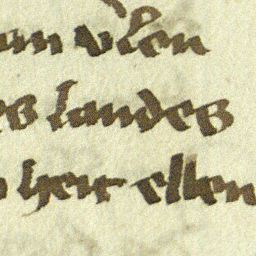 an vlen
es landes
heit ellen